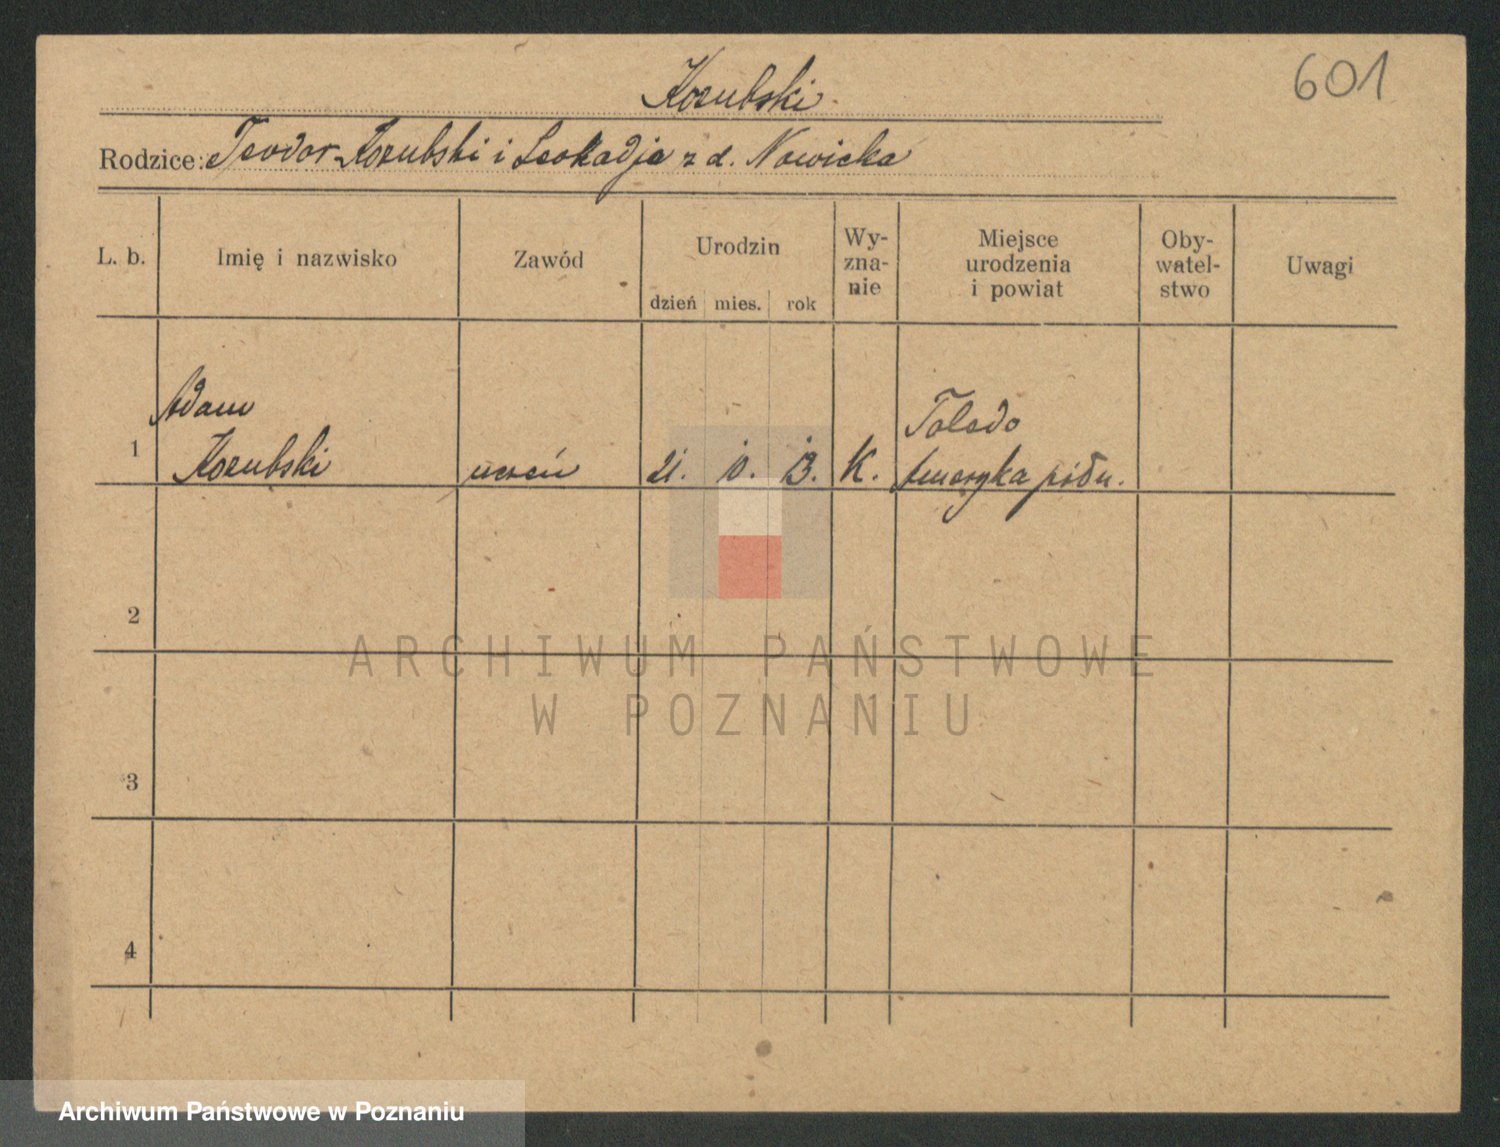 601
Kozubski
Rodzice: Teodor Kozubski i Leokadja z d. Nowicka
L. b.
Imię i nazwisko
Zawód
Urodzin
dzień mies. rok
Wy-
zna-
nie
Miejsce
urodzenia
i powiat
Oby-
watel-
stwo
Uwagi
Adam
1 Kozubski uczeń 21. 10. 13. K.
Toledo
Ameryka półn.
2
3
4
ARCHIWUM PAŃSTWOWE
W POZNANIU
Archiwum Państwowe w Poznaniu